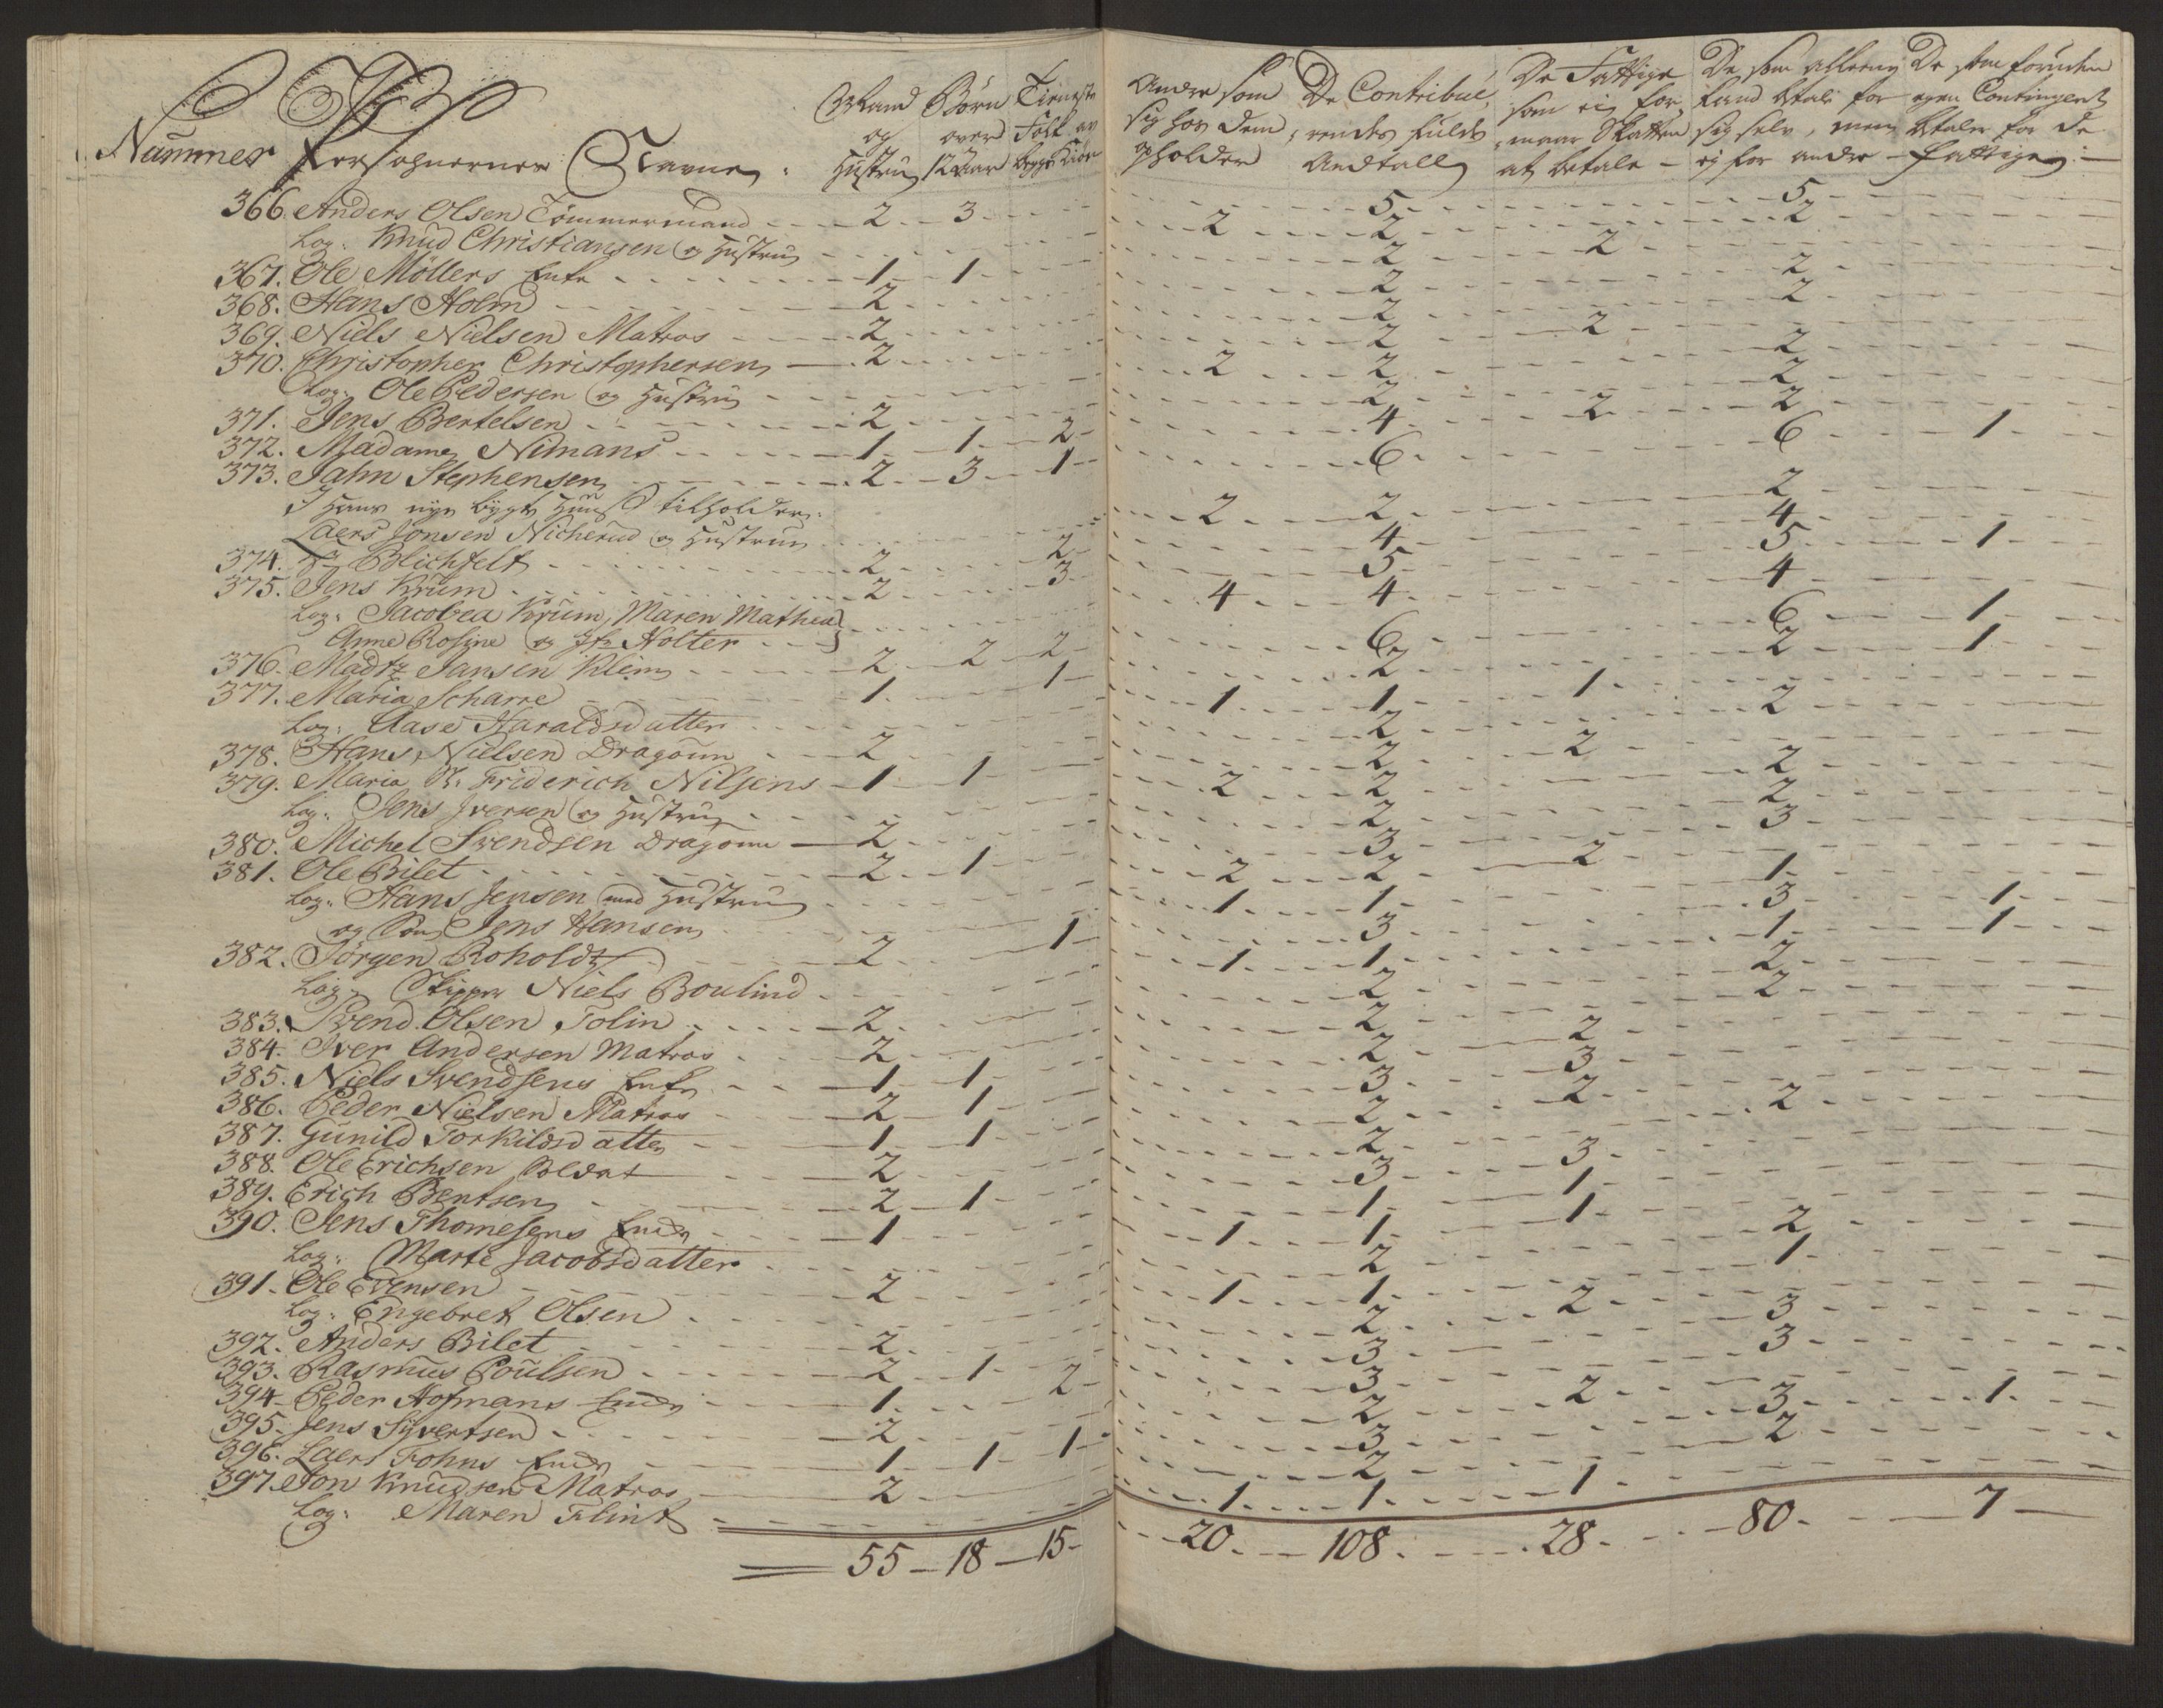 Nummer Persohnernes Navne. Mand og Hustru Børn over 12 Aar Tieneste Folk av begge Kiøn Andre som sig hos dem opholder De Contribuerendes fulde Andtall De Fattige som eij formaar Skatten at betale De som alleene kand betale for sig selv, men ej for andre De som foruden egen Contingent betaler for de fattige
366. Anders Olsen Tömmermand 2 3 5 5
Log: Knud Christiansen og Hustru 2 2 2
367. Ole Möllers Enke 1 1 2 2
368. Hans Holm 2 2 2
369. Niels Nielsen Matros 2 2 2
370. Christopher Christophersen 2 2 2
Log: Ole Pedersen og Hustru 2 2 2
371. Jens Bertelsen 2 2 2
372. Madame Nimans 1 1 2 4 2 2
373. Jahn Stephensen 2 3 1 6 6 1
I Hans nye bygte Huus tilholder
Laers Jonsen Nicherud og Hustrue 2 2 2
374. Hr Blichfelt 2 2 4 4
375. Jens Krum 2 3 5 5 1
Log: Jacobea Krum, Maren Mathea
Anne Rosine og Jfr Holter 4 4 4
376. Madtz Jansen Klein 2 2 2 6 6 1
377. Maria Scharre 1 1 2 2 1
Log: Aase Haraldsdatter 1 1 1
378. Hans Nielsen Dragoun 2 2 2
379. Maria Sl. Friderich Nilsens 1 1 2 2
Log: Jens Iversen og Hustru 2 2 2
380. Michel Svendsen Dragoun 2 2 2
381. Ole Bilet 2 1 3 3
Log: Hans Jensen med Hustru 2 2 2
og Søn Jens Hansen 1 1 1
382. Jørgen Roholdt 2 1 3 3 1
Log: Skipper Niels Boulind 1 1 1 1
383. Svend Olsen Tolin 2 2 2
384. Iver Andersen Matros 2 2 2
385. Niels Svendsens Enke 1 1 2 2
386. Peder Nielsen Matros 2 1 3 3
387. Gunild Torkildsdatter 1 1 2 2
388. Ole Erichsen Soldat 2 2 2
389. Erich Bentsen 2 1 3 3
390. Jens Thomesens Enke 1 1 1
Log: Marte Jacobsdatter 1 1 1
391. Ole Evensen 2 2 2
Log: Engebret Olsen 1 1 1
392. Anders Bilet 2 2 2
393. Rasmus Poulsen 2 1 3 3
394. Peder Hofmans Enke 1 2 3 3
395. Jens Syvertsen 2 2 2
396. Laers Frohns Enke 1 1 1 3 3 1
397. Jon Knudsen Matros 2 2 2
Log: Maren Flint 1 1 1
55 18 15 20 108 28 80 7